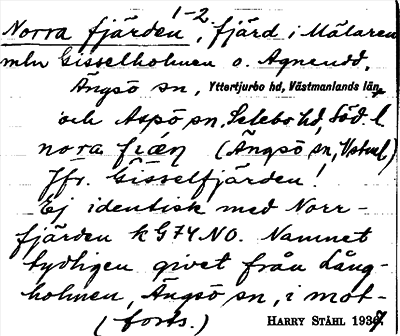 1-2
Norra fjärden, fjärd i Mälaren
mln Gisselholmen o. Agnudd,
Ängsö sn, Yttertjurbo hd, Västmanlands län,
och Aspö sn, Selebo hd, Söd. l
nora fiæņ (Ängsö sn, Västml.)
Jfr. Gisselfjärden!
Ej identisk med Norr-
fjärden kG74NO. Namnet
tydligen givet från Lång-
holmen, Ängsö sn, i mot-
(forts.) HARRY STÅHL 1937.